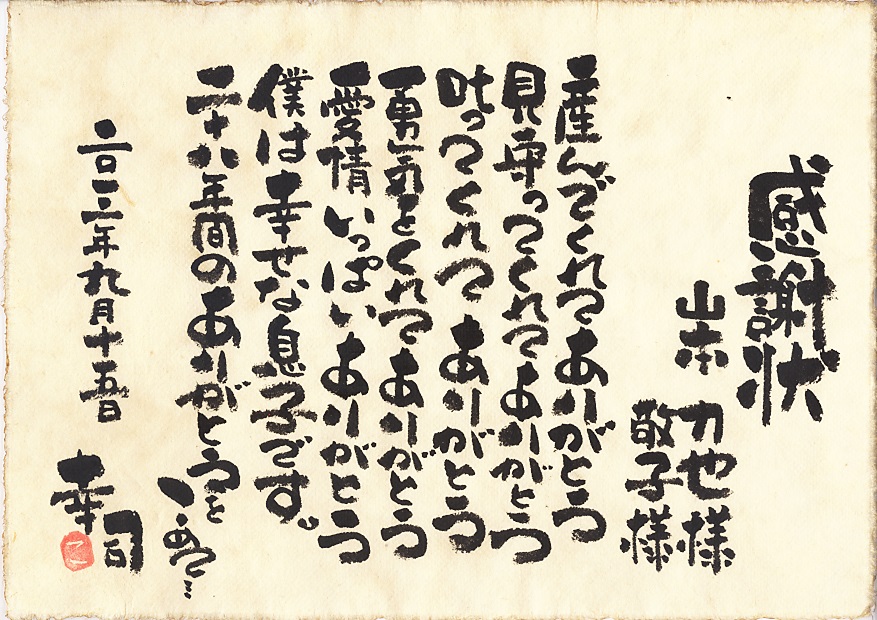 感謝状
山本 力也様
敬子様
産んでくれてありがとう
見守ってくれてありがとう
叱ってくれてありがとう
勇気をくれてありがとう
愛情いっぱいありがとう
僕は幸せな息子です。
二十八年間のありがとうを
こめて…
二〇一三年九月十五日
幸司